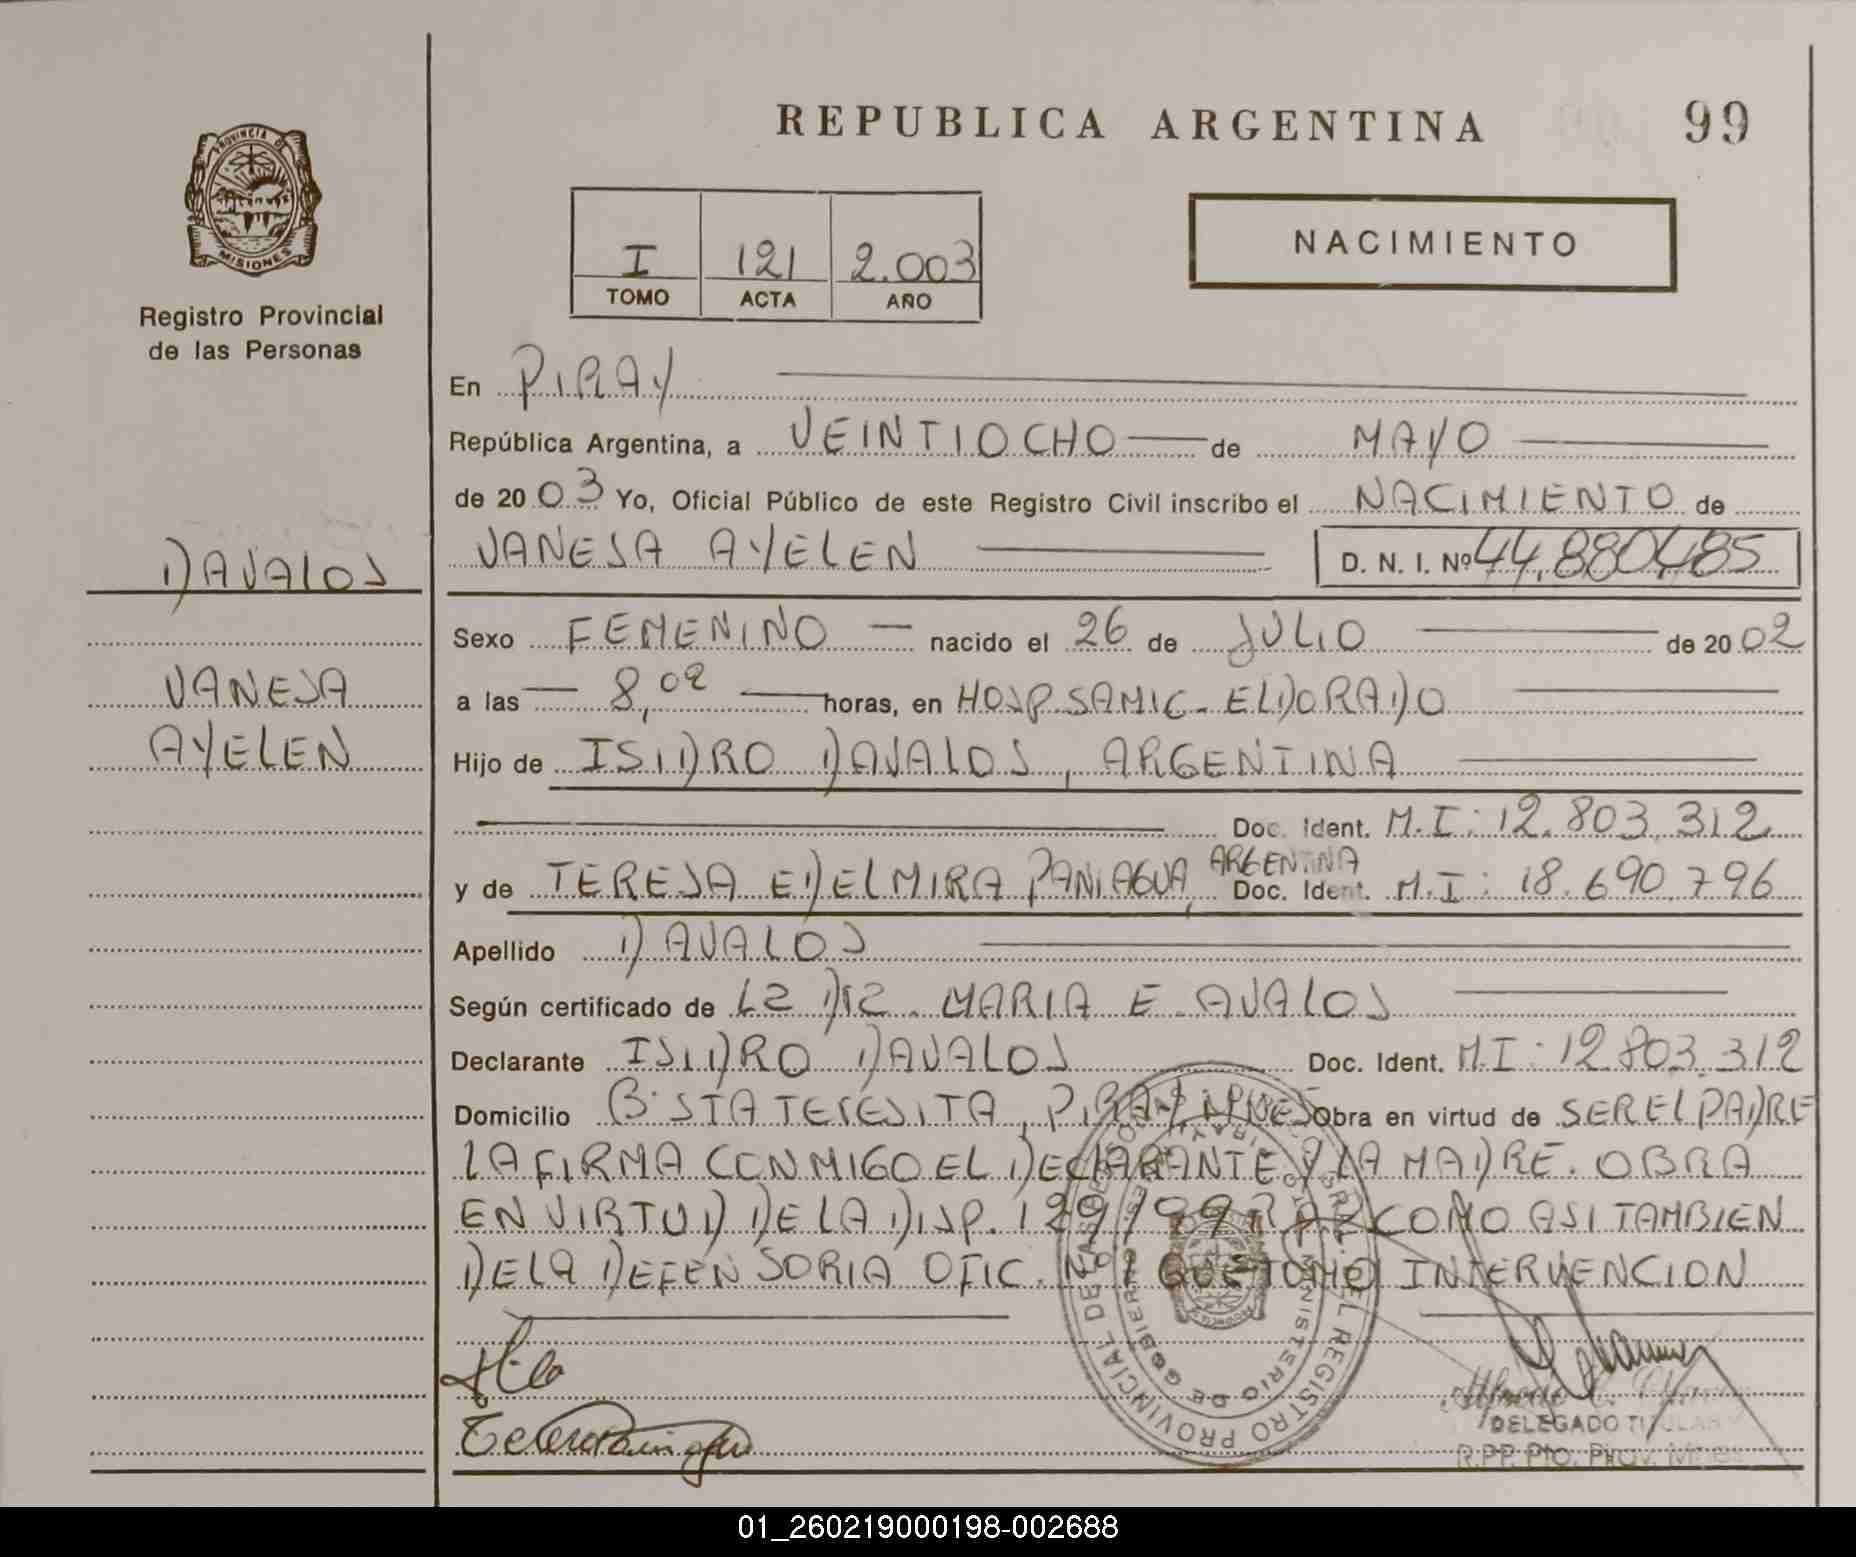 REPUBLICA ARGENTINA
99
PROVINCIA DE
MISIONES
Registro Provincial
de las Personas
I 121 2.003
TOMO ACTA AÑO
NACIMIENTO
En PIRAY
República Argentina, a VEINTIOCHO de MAYO
de 20 03 Yo, Oficial Público de este Registro Civil inscribo el NACIMIENTO de
VANESA AYELEN D. N. I. Nº 44.880.485
DAVALOS
VANESA
AYELEN
Sexo FEMENINO nacido el 26 de JULIO de 20 02
a las 8,02 horas, en HOSP SAMIC - ELDORADO
Hijo de ISIDRO DAVALOS, ARGENTINA
Doc. Ident. M.I: 12.803.312
y de TERESA EDELMIRA PANIAGUA, ARGENTINA Doc. Ident. M.I: 18.690.796
Apellido DAVALOS
Según certificado de MARIA E. AVALOS
Declarante ISIDRO DAVALOS Doc. Ident. M.I: 12.803.312
Domicilio Bº STA TERESITA, PIRAY, MNES Obra en virtud de SER EL PADRE
LA FIRMA CONMIGO EL DECLARANTE Y LA MADRE. OBRA
EN VIRTUD DE LA DISP. 129/99 COMO ASI TAMBIEN
DE LA DEFENSORIA OFIC. Nº QUE TOMO INTERVENCION
REGISTRO PROVINCIAL DE LAS PERSONAS
MINISTERIO DE GOBIERNO
DELEGADO TITULAR
R.P.P. Pto. Piray
01_260219000198-002688